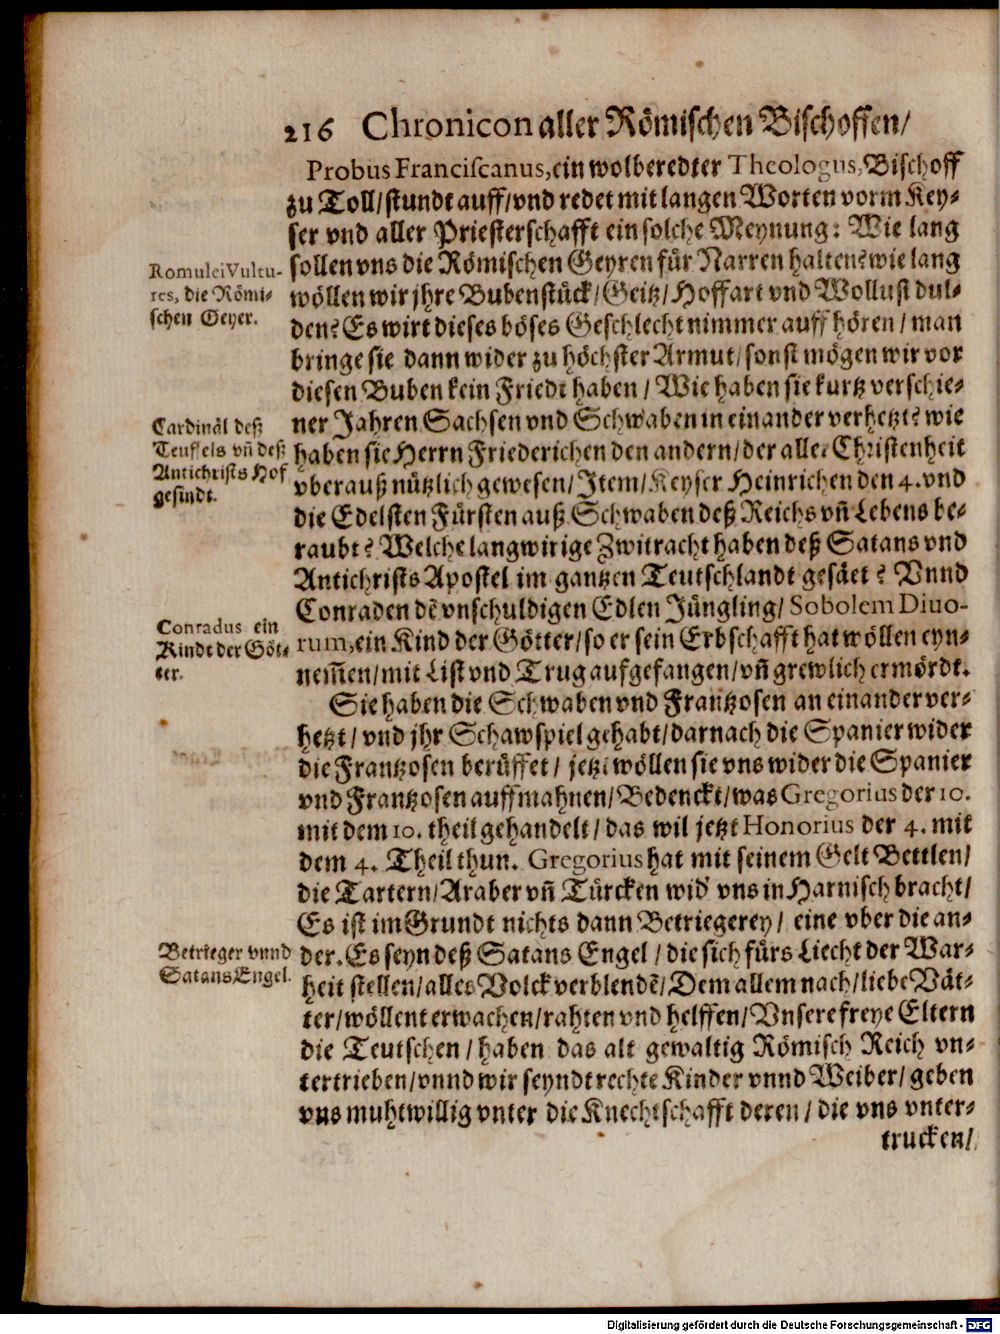 216 Chronicon aller Römischen Bischoffen/
Probus Franciscanus, ein wolberedter Theologus, Bischoff
zu Toll/ stundt auff/ vnd redet mit langen Worten vorm Key-
ser vnd aller Priesterschafft ein solche Meynung: Wie lang
sollen vns die Römischen Geyren für Narren halten? wie lang
wöllen wir jhre Bubenstück/ Geitz/ Hoffart vnd Wollust dul-
den? Es wirt dieses böses Geschlecht nimmer auff hören/ man
bringe sie dann wider zu höchster Armut/ sonst mögen wir vor
diesen Buben kein Friedt haben/ Wie haben sie kurtz verschie-
ner Jahren Sachsen vnd Schwaben in einander verhetzt? wie
haben sie Herrn Friederichen den andern/ der aller Christenheit
vberauß nützlich gewesen/ Item/ Keyser Heinrichen den 4. vnd
die Edelsten Fürsten auß Schwaben deß Reichs vñ Lebens be-
raubt? Welche langwirige Zwitracht haben deß Satans vnd
Antichrists Apostel im gantzen Teutschlandt gesäet? Vnnd
Conraden dē vnschuldigen Edlen Jüngling/ Sobolem Diuo-
rum, ein Kind der Götter/ so er sein Erbschafft hat wöllen eyn-
nem̄en/ mit List vnd Trug auffgefangen/ vñ grewlich ermördt.
Sie haben die Schwaben vnd Frantzosen an einander ver-
hetzt/ vnd jhr Schawspiel gehabt/ darnach die Spanier wider
die Frantzosen berüffet/ jetzt wöllen sie vns wider die Spanier
vnd Frantzosen auffmahnen/ Bedenckt/ was Gregorius der 10.
mit dem 10. theil gehandelt/ das wil jetzt Honorius der 4. mit
dem 4. Theil thun. Gregorius hat mit seinem Gelt Bettlen/
die Tartern/ Araber vñ Türcken wid' vns in Harnisch bracht/
Es ist im Grundt nichts dann Betriegerey/ eine vber die an-
der. Es seyn deß Satans Engel/ die sich fürs Liecht der War-
heit stellen/ alles Volck verblendē/ Dem allem nach/ liebe Vät-
ter/ wöllent erwachen/ rahten vnd helffen/ Vnsere freye Eltern
die Teutschen/ haben das alt gewaltig Römisch Reich vn-
tertrieben/ vnnd wir seyndt rechte Kinder vnnd Weiber/ geben
vns muhtwillig vnter die Knechtschafft deren/ die vns vnter-
trucken/
Romulei Vultu-
res, die Römi-
schen Geyer.
Cardinäl deß
Teuffels vñ deß
Antichrists Hof
gesindt.
Conradus ein
Kindt der Göt-
ter.
Betrieger vnnd
Satans Engel.
Digitalisierung gefördert durch die Deutsche Forschungsgemeinschaft - DFG